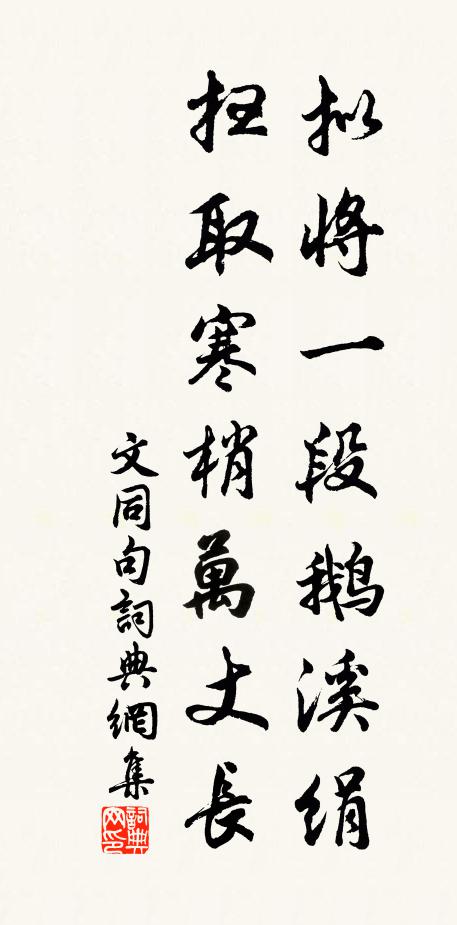 拟將一段鵝溪絹
扫取寒梢萬丈長
文同句詞典網集
詞典网印